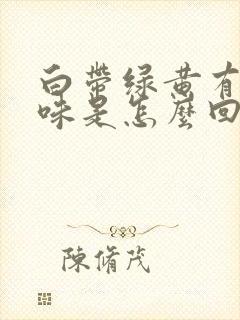 白帶绿黄有
味是怎麼回
陳脩茂